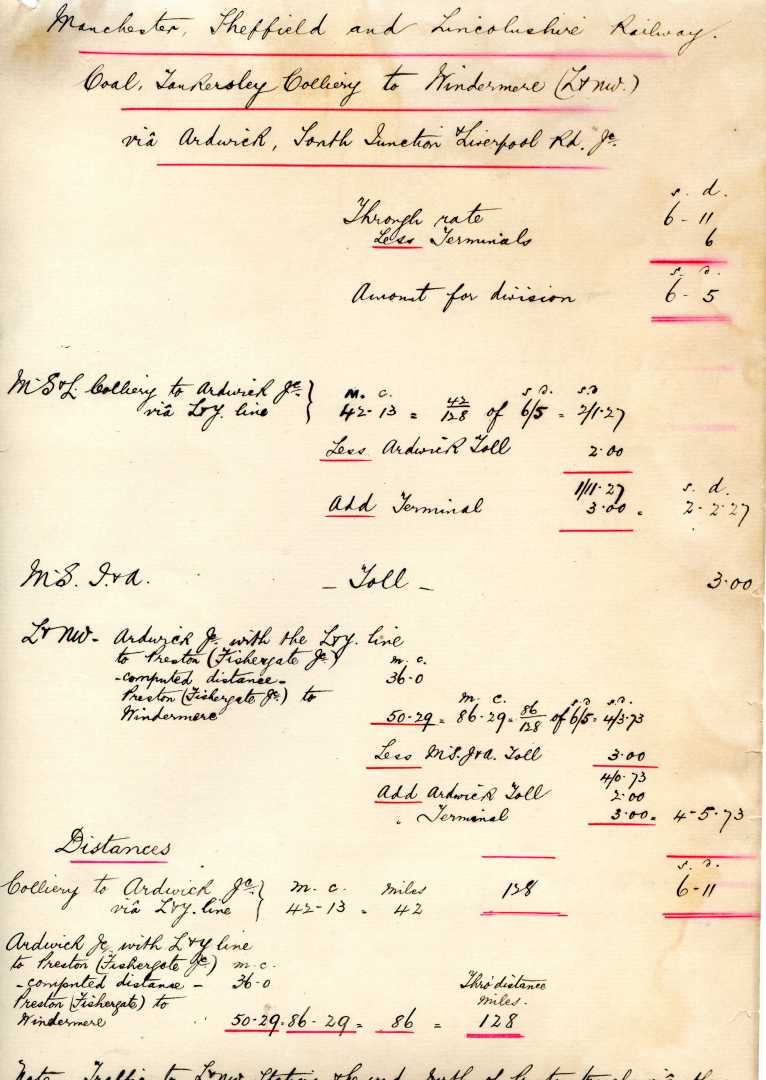 Manchester, Sheffield and Lincolnshire Railway.
Coal, Tankersley Colliery to Windermere (L&NW.)
viâ Ardwick, South Junction & Liverpool Rd. Jc.
s. d.
Through rate 6-11
Less Terminals 6
s. d.
Amount for division 6-5
M.S&L. Colliery to Ardwick Jc. } m. c. s. d. s. d.
viâ L&Y. line 42-13 = 42/128 of 6/5 = 2/1.27
Less Ardwick Toll 2.00
1/11.27 s. d.
Add Terminal 3.00 = 2-2.27
M.S.J.&A. - Toll - 3.00
L&NW- Ardwick Jc. with the L&Y. line
to Preston (Fishergate Jc.) m. c.
-computed distance- 36-0
Preston (Fishergate Jc.) to m. c. s. d. s. d.
Windermere 50-29 = 86-29 = 86/128 of 6/5 = 4/3.73
Less M.S.J.&A. Toll 3.00
4/0.73
Add Ardwick Toll 2.00
" Terminal 3.00 = 4-5.73
Distances
s. d.
Colliery to Ardwick Jc. } m. c. miles 128 6-11
viâ L&Y. line 42-13 = 42
Ardwick Jc with L&Y line
to Preston (Fishergate Jc.) m. c.
-computed distance- 36-0 Thro' distance
Preston (Fishergate) to miles.
Windermere 50-29 = 86-29 = 86 = 128
Note. Traffic to L&NW. Stations